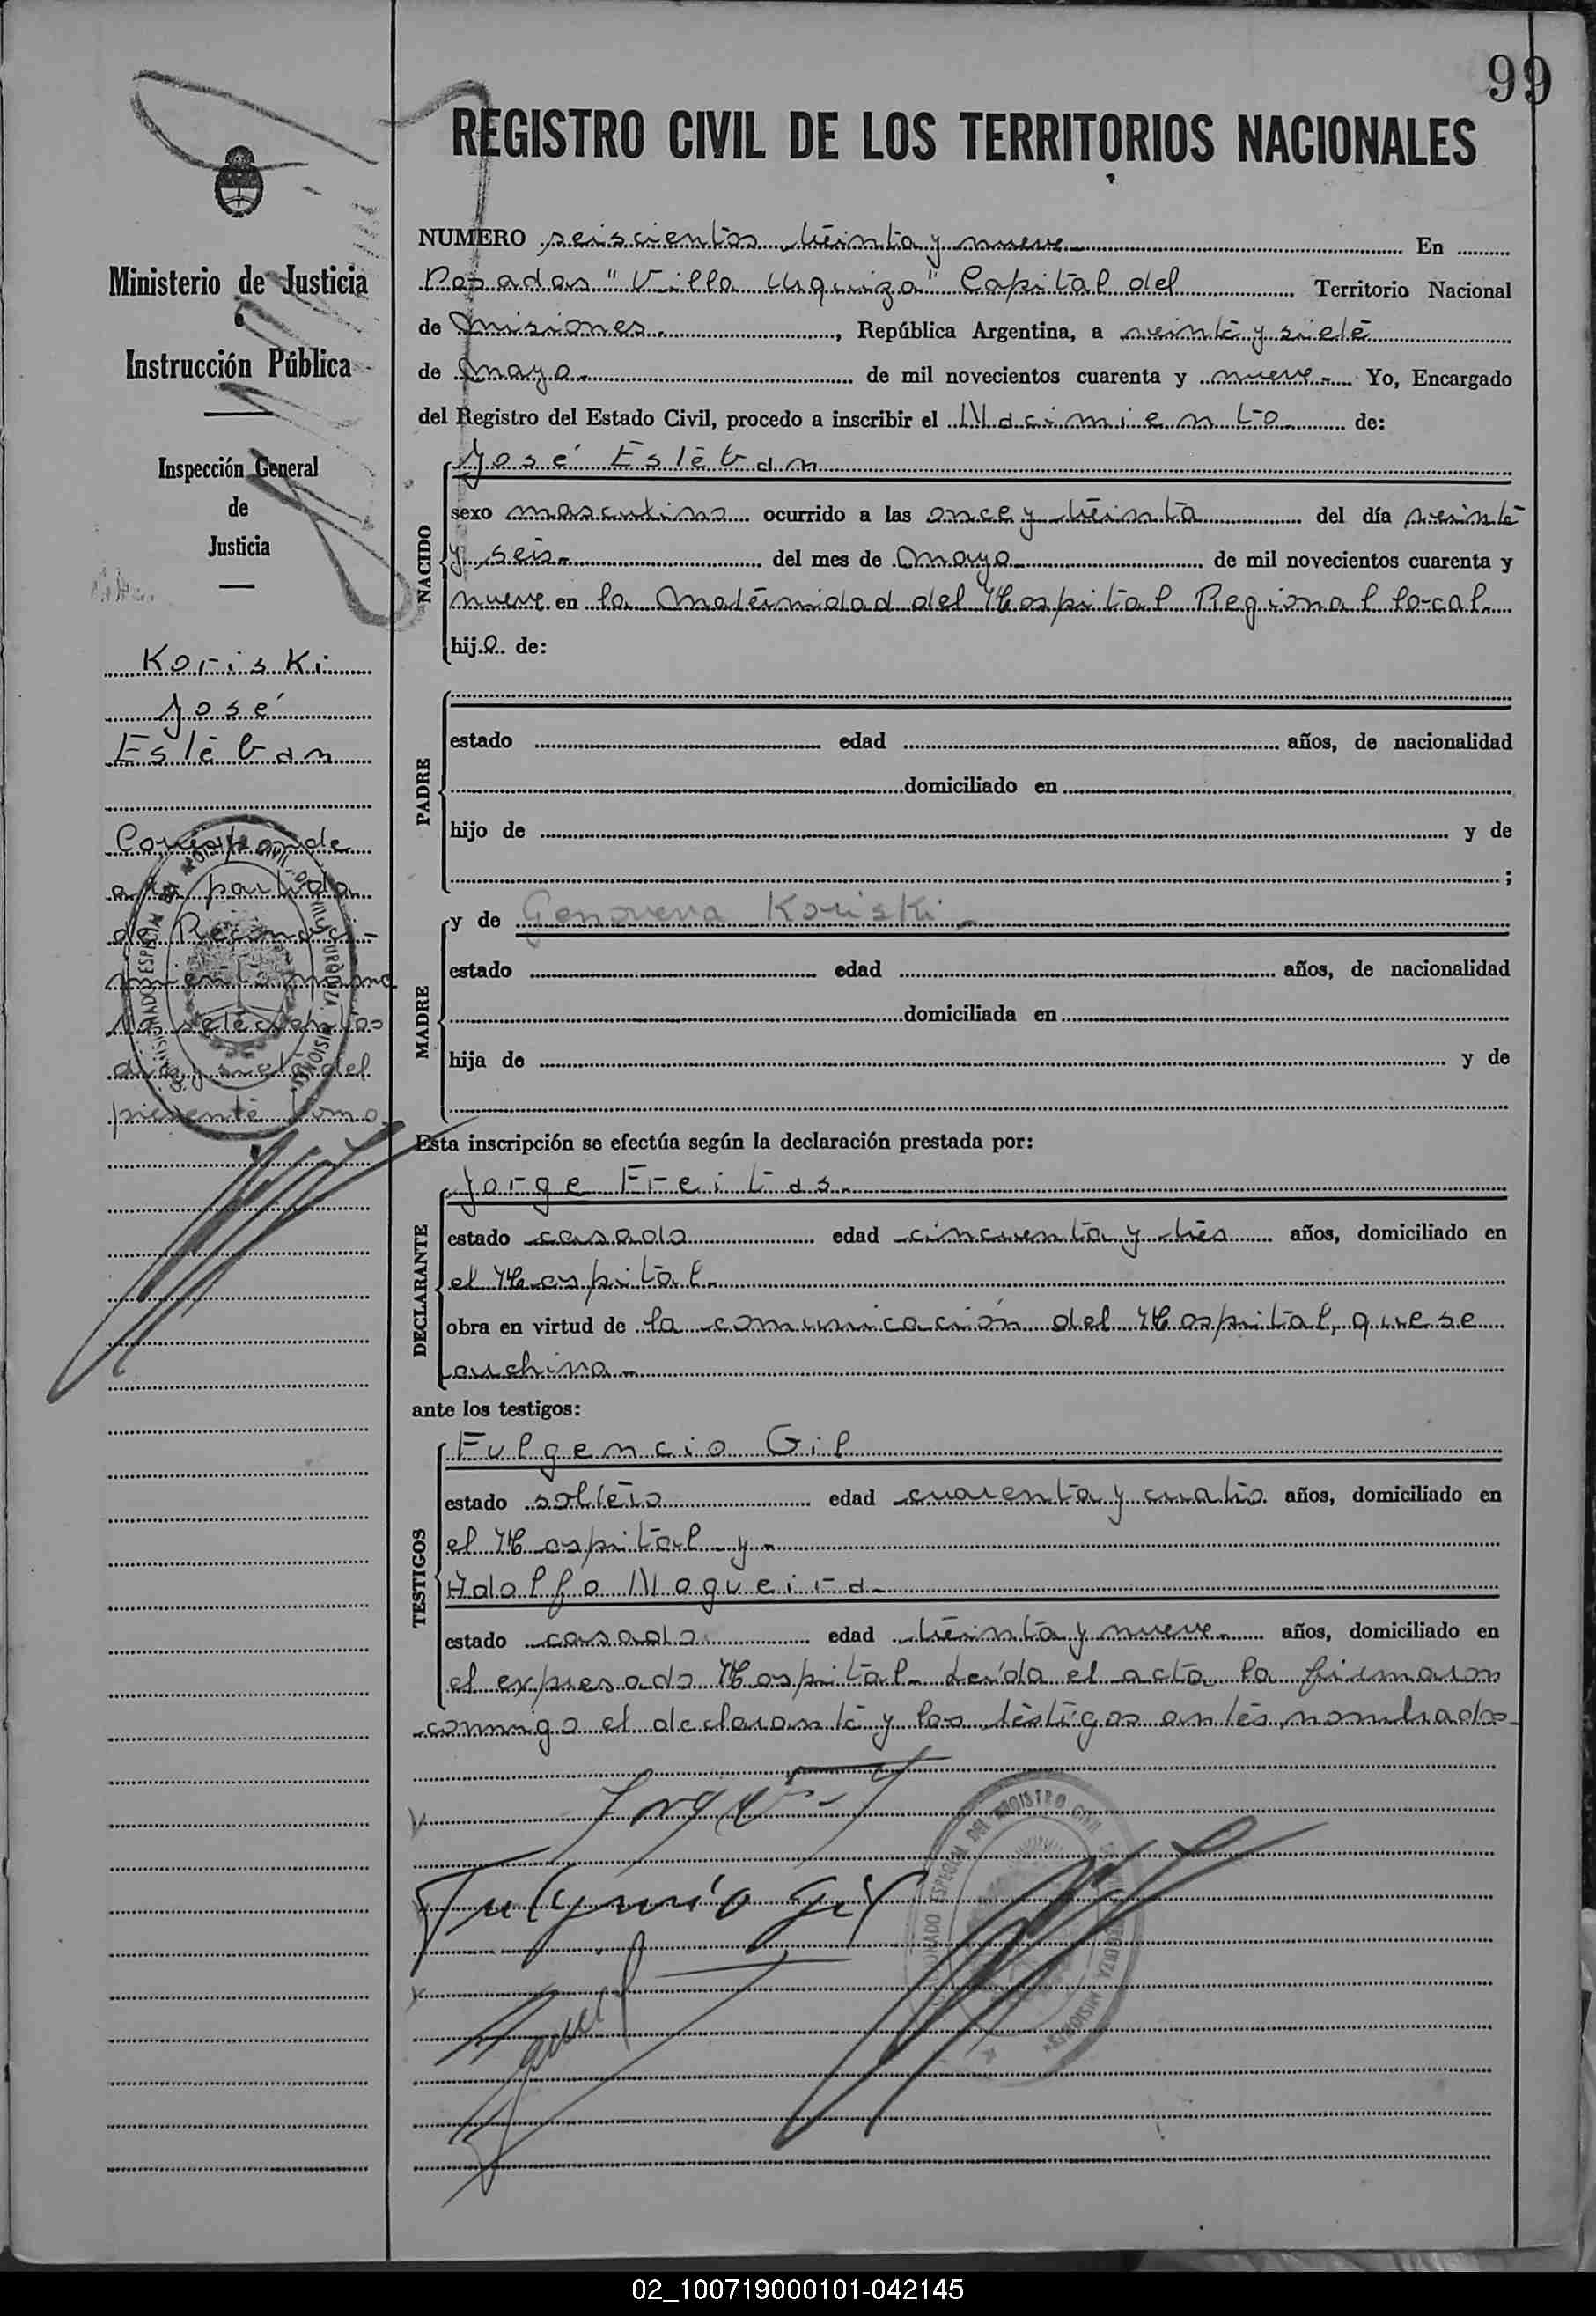 99
REGISTRO CIVIL DE LOS TERRITORIOS NACIONALES
Ministerio de Justicia
e
Instrucción Pública
Inspección General
de
Justicia
Koriski
José
Esteban
Corresponde
a la partida
de Reconoci-
miento núme
ro setecientos
diez y siete del
presente tomo
NUMERO seiscientos treinta y nueve En
Posadas "Villa Urquiza" Capital del Territorio Nacional
de Misiones. , República Argentina, a veinte y siete
de Mayo. de mil novecientos cuarenta y nueve. Yo, Encargado
del Registro del Estado Civil, procedo a inscribir el Nacimiento de:
NACIDO
José Esteban
sexo masculino ocurrido a las once y treinta del día veinte
y seis. del mes de Mayo de mil novecientos cuarenta y
nueve en la Maternidad del Hospital Regional local.
hijo de:
PADRE
estado edad años, de nacionalidad
domiciliado en
hijo de y de
;
MADRE
y de Genoveva Koriski.
estado edad años, de nacionalidad
domiciliada en
hija de y de
Esta inscripción se efectúa según la declaración prestada por:
DECLARANTE
Jorge Freitas.
estado casado edad cincuenta y tres años, domiciliado en
el Hospital.
obra en virtud de la comunicación del Hospital, que se
archiva.
ante los testigos:
TESTIGOS
Fulgencio Gil
estado soltero edad cuarenta y cuatro años, domiciliado en
el Hospital y.
Adolfo Nogueira.
estado casado edad treinta y nueve. años, domiciliado en
el expresado Hospital. Leída el acta la firmaron
conmigo el declarante y los testigos antes nombrados
Fulgencio Gil
02_100719000101-042145